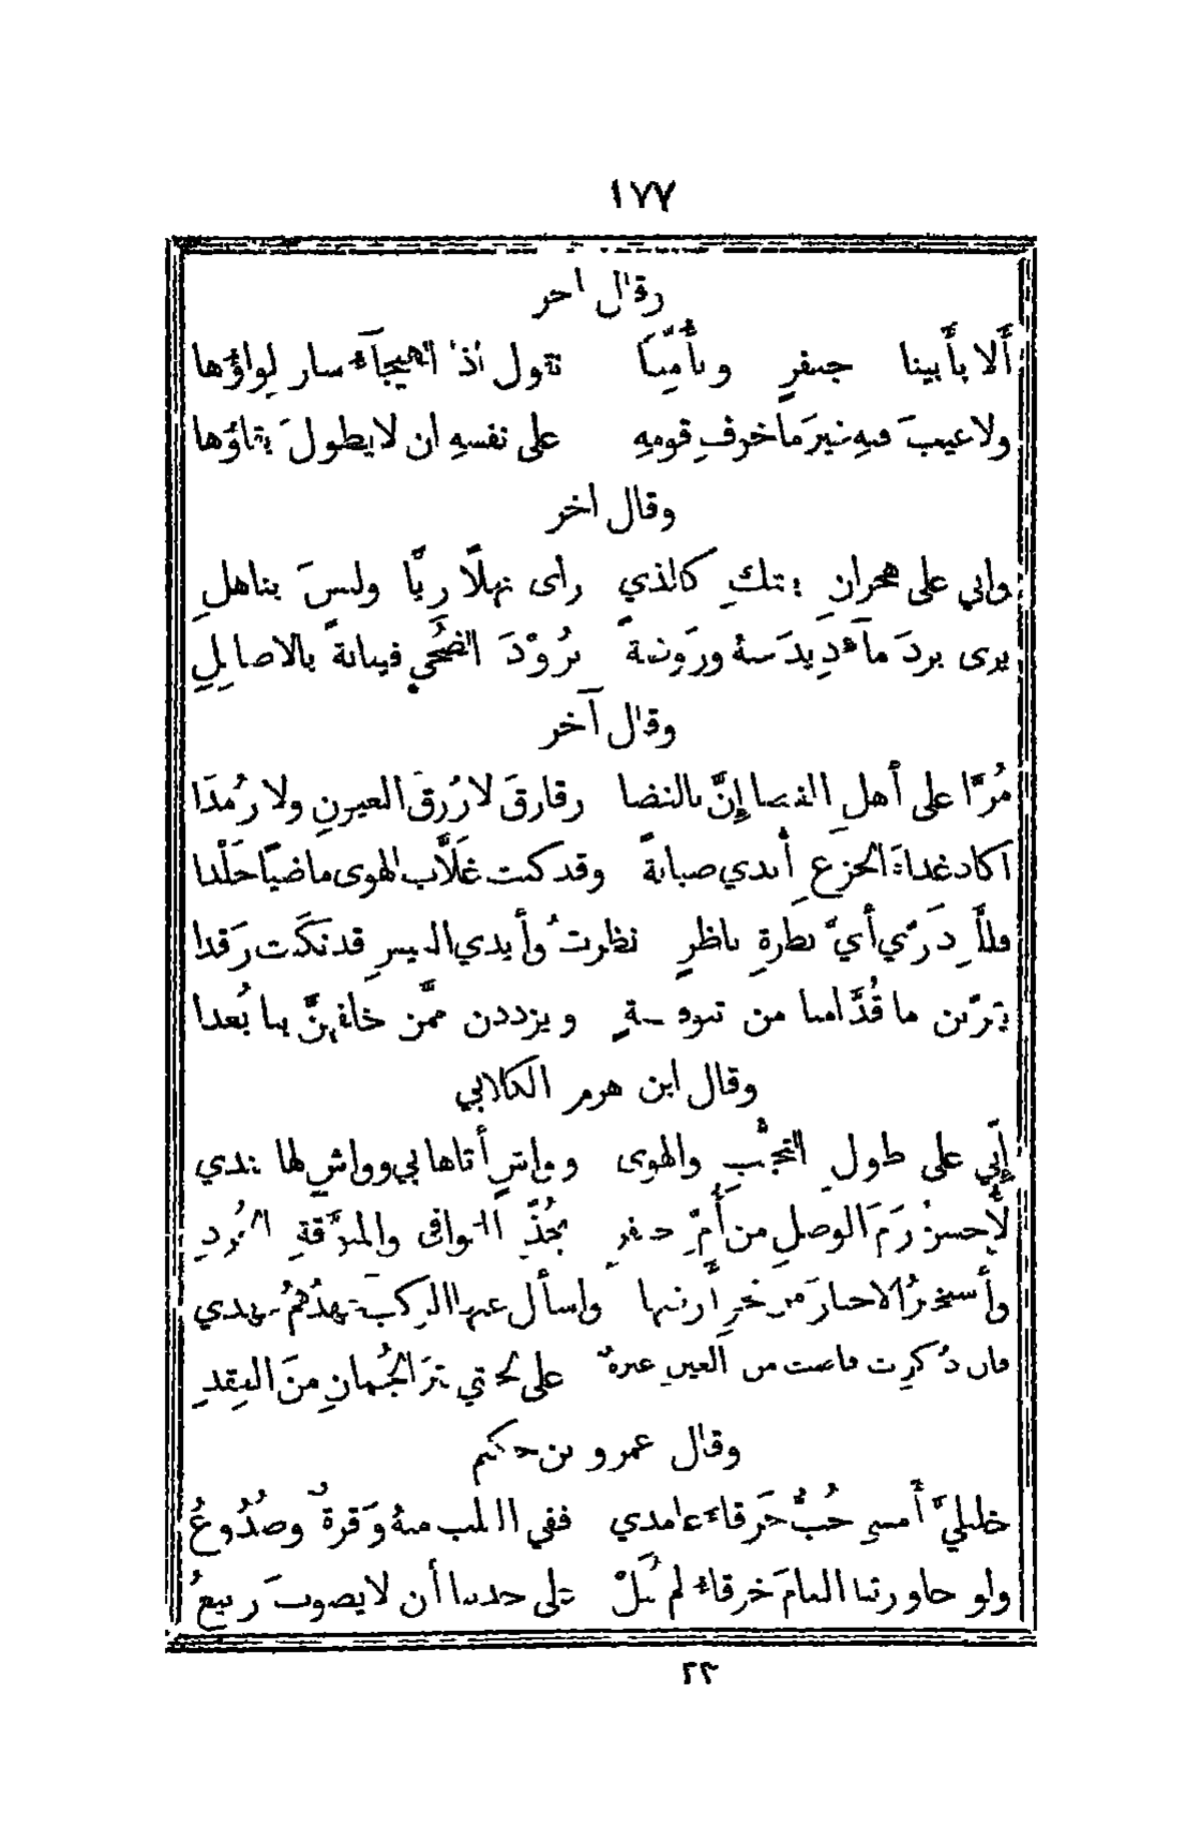 ١٧٧
وقال آخر
أَلا بأَبينا جعفرٍ وبأُمِّنا نقول إذا الهيجآء سار لِواؤُها
ولا عيبَ فيهِ غيرَ ما خوفِ قومهِ على نفسهِ ان لا يطولَ بقاؤها
وقال آخر
واني على هجرانِ بيتكِ كالذي رأى نهلًا رِيًّا وليسَ بناهلِ
يرى بردَ مآءٍ ذِيدَ عنهُ ورَوضةً بَرُوْدَ الضُحَى فينانةً بالاصايلِ
وقال آخر
مُرَّا على أهلِ الغضا إِنَّ بالغضا رقارقَ لا زُرقَ العيونِ ولا رُمْدَا
أكاد غداةَ الجزعِ أُبدي صبابةً وقد كنت غلَّاب الهوى ماضيًا جَلْدا
فللَّهِ دَرّي أَيَّ نظرةِ ناظرٍ نظرتُ وأَيدي العيسِ قد نكَّبَت رَقدا
يقرّبن ما قُدَّامنا من تنوفةٍ ويزددن ممَّن خلفهنَّ بنا بُعدا
وقال ابن هرم الكلابي
إِنّي على طولِ التجنُّبِ والهوى وواشٍ أَتاها بي وواشٍ لها عندي
لأُحسنُ رَمَّ الوصلِ من أُمِّ جعفرٍ بجُذِّ القوافي والمنوَّقةِ الجُردِ
وأَستخبرُ الاخبارَ من نحوِ أَرضها واسأَل عنها الركبَ عهدُهُمُ عهدي
فان ذُكرت فاضت من العينِ عبرةٌ على لحيتي نثرَ الجُمانِ منَ العِقدِ
وقال عمرو بن حكيم
خليليَّ أَمسى حُبُّ خَرقاءَ عامدي ففي القلب منهُ وَقرةٌ وصُدُوعُ
ولو جاورتنا العامَ خرقاءُ لم نُبَلْ على جدبنا أن لا يصوبَ ربيعُ
٢٣